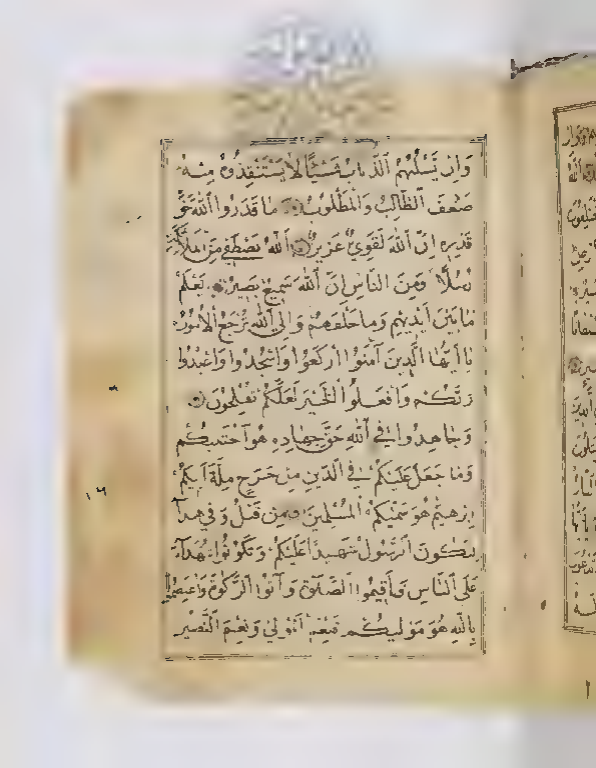 وَاِنْ يَسْلُبْهُمُ الذُّبَابُ شَيْئًا لَا يَسْتَنْقِذُوهُ مِنْهُ
ضَعُفَ الطَّالِبُ وَالْمَطْلُوبُ مَا قَدَرُوا اللّٰهَ حَقَّ
قَدْرِهِ اِنَّ اللّٰهَ لَقَوِيٌّ عَزِيزٌ اَللّٰهُ يَصْطَفِي مِنَ الْمَلٰٓئِكَةِ
رُسُلًا وَمِنَ النَّاسِ اِنَّ اللّٰهَ سَمِيعٌ بَصِيرٌ يَعْلَمُ
مَا بَيْنَ اَيْدِيهِمْ وَمَا خَلْفَهُمْ وَاِلَى اللّٰهِ تُرْجَعُ الْاُمُورُ
يَا اَيُّهَا الَّذِينَ آمَنُوا ارْكَعُوا وَاسْجُدُوا وَاعْبُدُوا
رَبَّكُمْ وَافْعَلُوا الْخَيْرَ لَعَلَّكُمْ تُفْلِحُونَ
وَجَاهِدُوا فِي اللّٰهِ حَقَّ جِهَادِهِ هُوَ اجْتَبٰيكُمْ
وَمَا جَعَلَ عَلَيْكُمْ فِي الدِّينِ مِنْ حَرَجٍ مِلَّةَ اَبِيكُمْ
اِبْرٰهِيمَ هُوَ سَمّٰيكُمُ الْمُسْلِمِينَ مِنْ قَبْلُ وَفِي هٰذَا
لِيَكُونَ الرَّسُولُ شَهِيدًا عَلَيْكُمْ وَتَكُونُوا شُهَدَآءَ
عَلَى النَّاسِ فَاَقِيمُوا الصَّلٰوةَ وَآتُوا الزَّكٰوةَ وَاعْتَصِمُوا
بِاللّٰهِ هُوَ مَوْلٰيكُمْ فَنِعْمَ الْمَوْلٰى وَنِعْمَ النَّصِيرُ